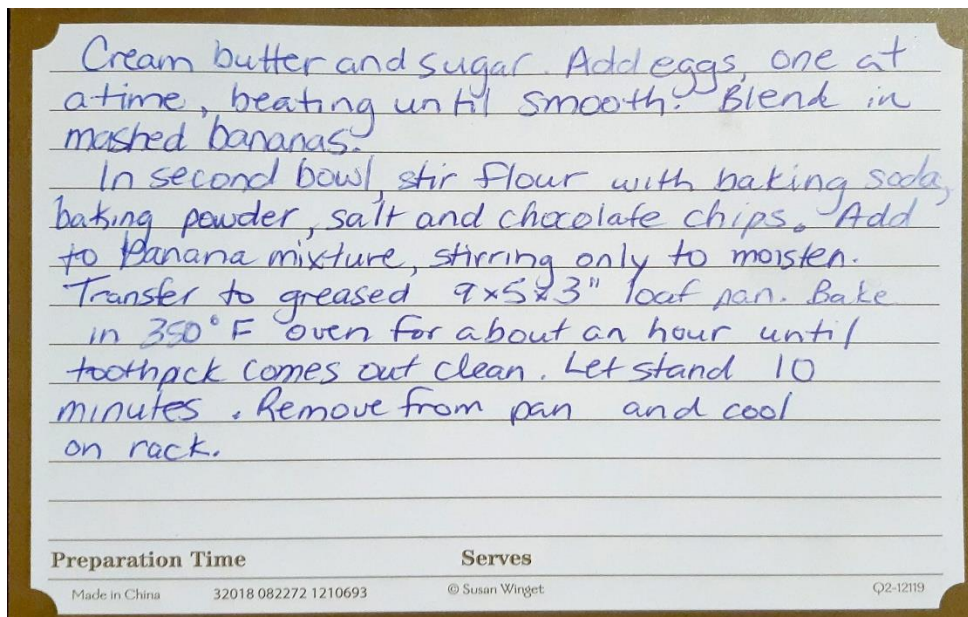 Cream butter and sugar. Add eggs, one at
a time, beating until smooth. Blend in
mashed bananas.
In second bowl, stir flour with baking soda,
baking powder, salt and chocolate chips. Add
to Banana mixture, stirring only to moisten.
Transfer to greased 9x5x3" loaf pan. Bake
in 350° F oven for about an hour until
toothpick comes out clean. Let stand 10
minutes. Remove from pan and cool
on rack.
Preparation Time Serves
Made in China 32018 082272 1210693 © Susan Winget Q2-12119